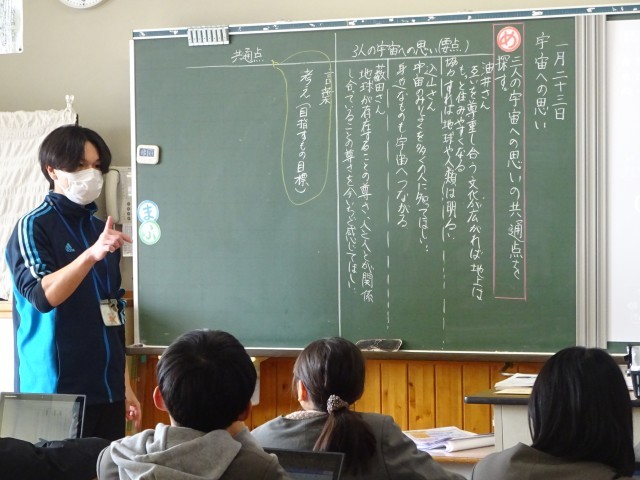 一月二十三日
宇宙への思い
め
三人の宇宙への思いの共通点を
探す。
油井さん
互いを尊重し合う文化が広がれば地上は
もっと住みやすくなる
協力すれば地球や人類は明るい
3人の宇宙への思い(要点)
込山さん
宇宙のみりょくを多くの人に知ってほしい…
身近なものも宇宙へつながる
藪田さん
地球が存在することの尊さ、人と人とが関係
し合っていることの尊さを今いちど感じてほしい…
共通点
言葉
考え(目指すもの目標)
ま
ふ
adidas